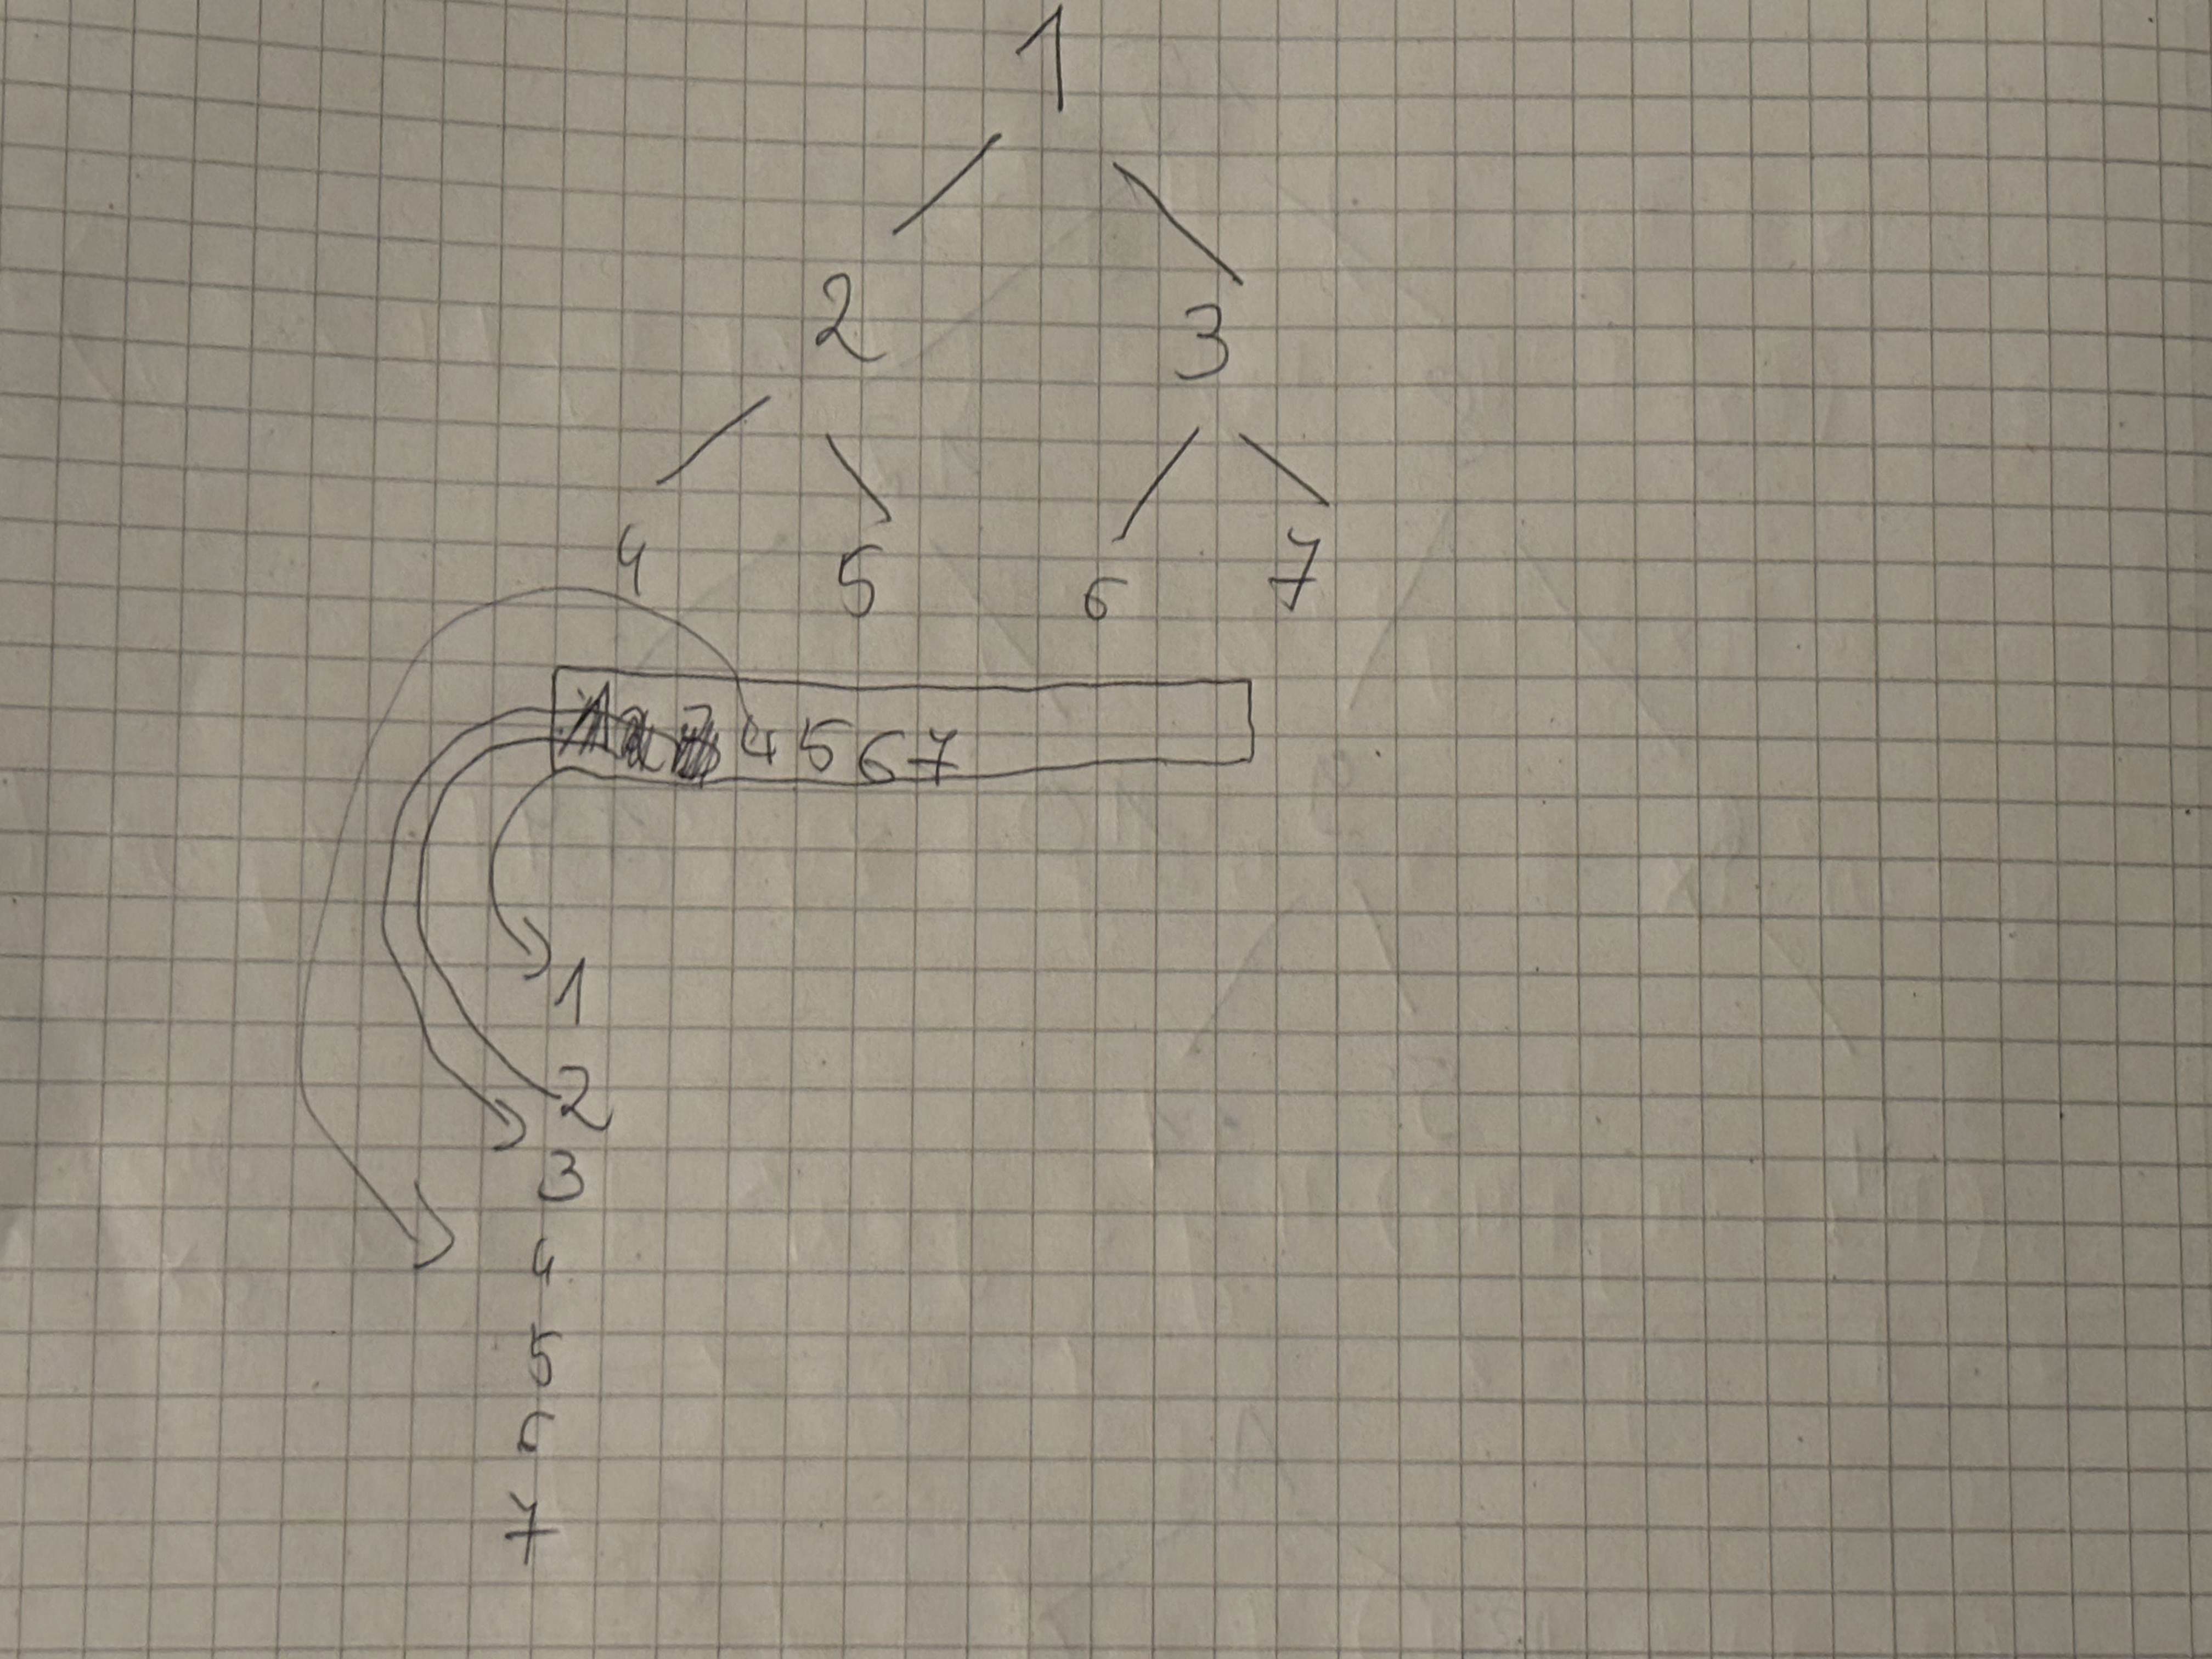 1
2 3
4 5 6 7
1 2 3 4 5 6 7
1
2
3
4
5
7